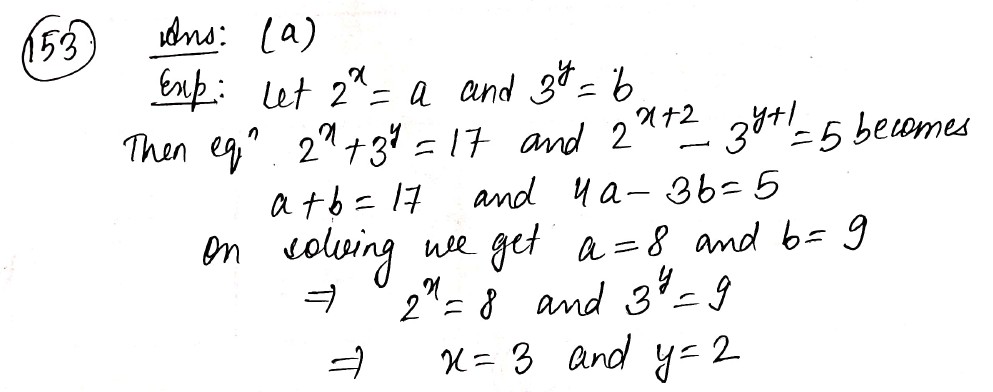 153 Ans: (a)
Exp: Let 2^x = a and 3^y = b
Then eqⁿ. 2^x + 3^y = 17 and 2^(x+2) - 3^(y+1) = 5 becomes
a + b = 17 and 4a - 3b = 5
On solving we get a = 8 and b = 9
⇒ 2^x = 8 and 3^y = 9
⇒ x = 3 and y = 2